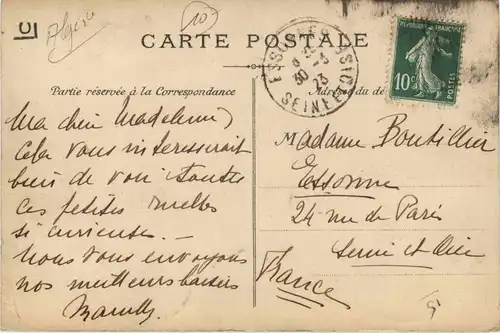 Algérie
10
CARTE POSTALE
Partie réservée à la Correspondance
Adresse du de
RÉPUBLIQUE FRANÇAISE
10c
POSTES
Ma chère Madeleine,
Cela vous intéresserait
bien de voir toutes
ces petites ruelles
si curieuses. —
Nous vous envoyons
nos meilleurs baisers
Madame Boutillier
Essonne
24 rue de Paris
Seine et Oise
France